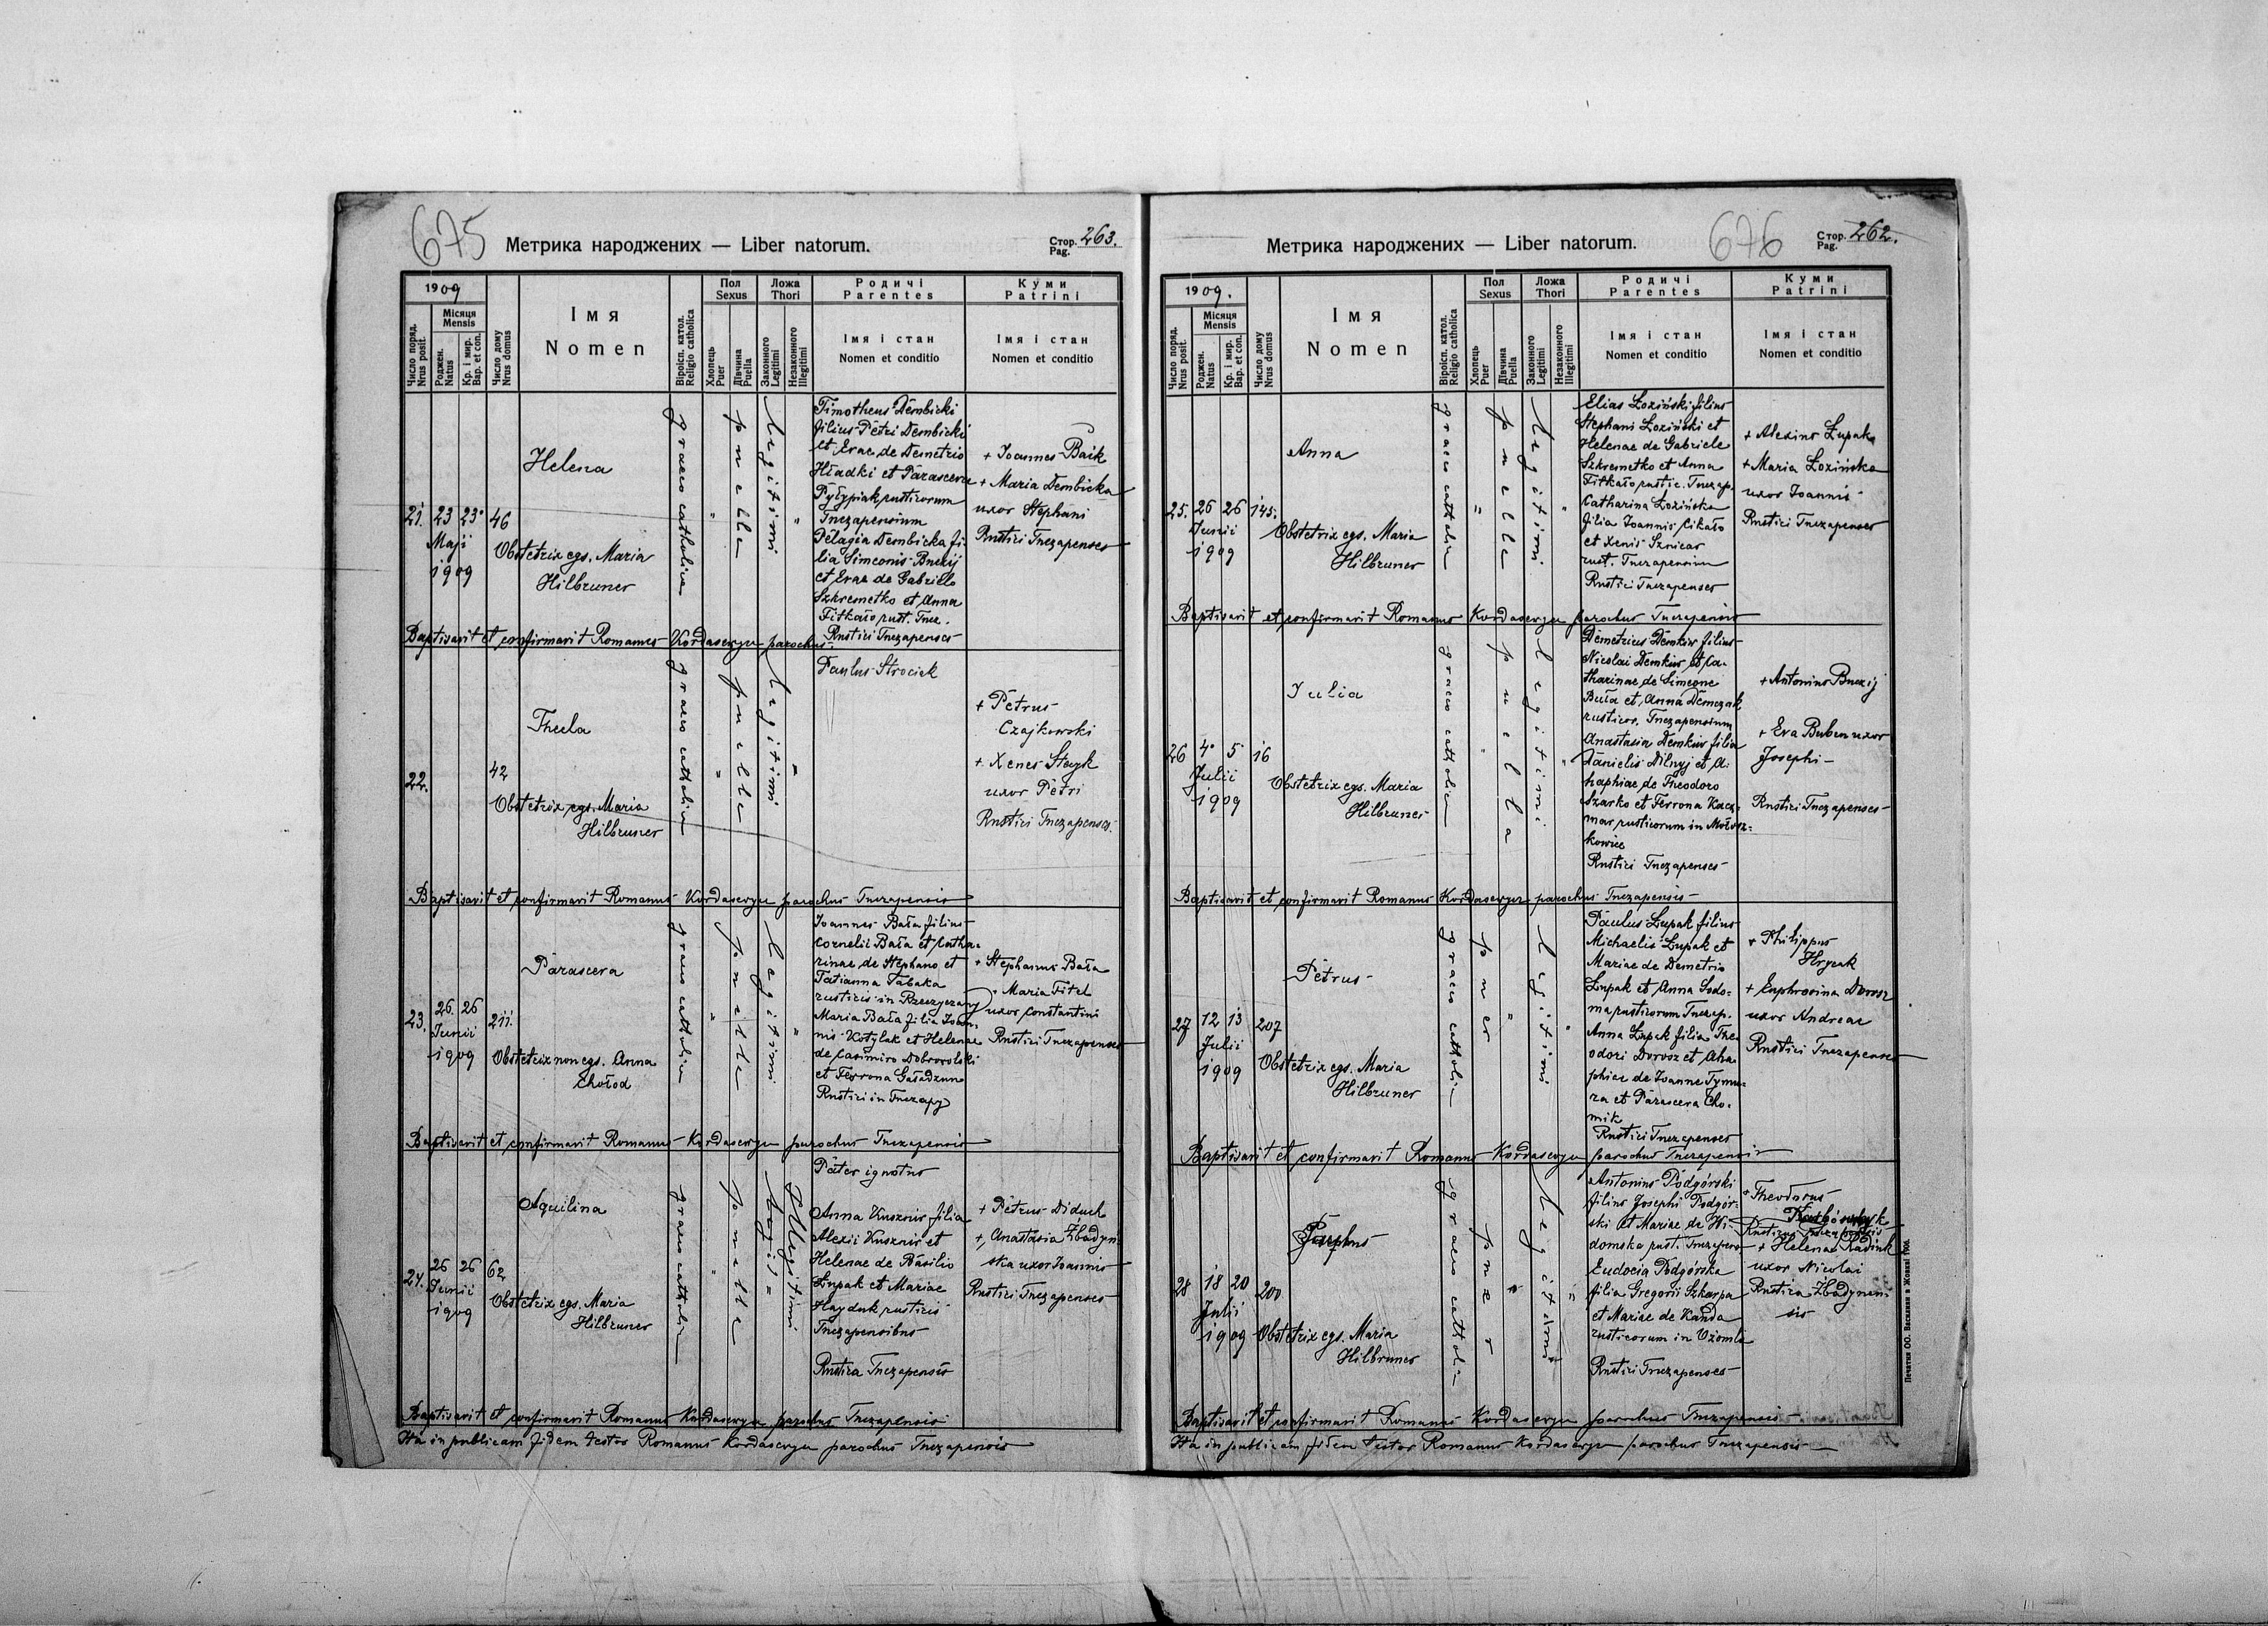 675
Метрика народжених — Liber natorum.
Стор. 263.
Pag.
1909
Число поряд.
Nrus posit.
Місяця
Mensis
Роджен.
Natus
Кр. і мир.
Bap. et con.
Число дому
Nrus domus
Імя
Nomen
Віроісп. катол.
Religio catholica
Пол
Sexus
Хлопець
Puer
Дівчина
Puella
Ложа
Thori
Законного
Legitimi
Незаконного
Illegitimi
Родичі
Parentes
Імя і стан
Nomen et conditio
Куми
Patrini
Імя і стан
Nomen et conditio
21. 23 23 46
Maji
1909
Helena
Obstetrix egs. Maria
Hilbruner
graeco catholica
puella
legitimi
Timotheus Dembicki
filius Petri Dembicki
et Evae de Demetrio
Hładki et Parascevia
rusticorum
Tuczapensium
Pelagia Dembicka fi-
lia Simeonis Buczij
et Evae de Gabriele
Szkremetko et Anna
Titkało rust. Tucz.
Rustici Tuczapenses
+ Ioannes Baik
+ Maria Dembicka
uxor Stephani
Rustici Tuczapenses
Baptisavit et confirmavit Romanus Kordasewycz parochus
22. 42
Thecla
Obstetrix egs. Maria
Hilbruner
graeco catholica
puella
legitimi
Paulus Strociak
+ Petrus
Czajkowski
+ Xenes
uxor Petri
Rustici Tuczapenses
Baptisavit et confirmavit Romanus Kordasewycz parochus Tuczapensis
23. 26. 26 211.
Junii
1909
Parasceva
Obstetrix non egs. Anna
Chołod
graeco catholica
puella
legitimi
Ioannes Bała filius
Cornelii Bała et Catha-
rinae de Stephano et
Tatianna Tabaka
rusticis in Rzeczyczany
Maria Bała filia Ioan-
nis Kotylak et Helenae
de Casimiro Dobrowolski
et Ferrona Gaładzun
Rustici in Tuczapy
+ Stephanus Bała
+ Maria Titel
uxor Constantini
Rustici Tuczapenses
Baptisavit et confirmavit Romanus Kordasewycz parochus Tuczapensis
24. 26 26 62
Junii
1909
Aquilina
Obstetrix egs. Maria
Hilbruner
graeco catholica
puella
Illegitimi
Pater ignotus
Anna Kusznir filia
Alexii Kusznir et
Helenae de Basilio
Łupak et Mariae
Hayduk rusticis
Tuczapensibus
Rustica Tuczapensis
+ Petrus Diduch
+ Anastasia Zbadyn-
ska uxor Ioannis
Rustici Tuczapenses
Baptisavit et confirmavit Romanus Kordasewycz parochus Tuczapensis
Ita in publicam fidem testor Romanus Kordasewycz parochus Tuczapensis
676
Метрика народжених — Liber natorum.
Стор. 262.
Pag.
1909.
Число поряд.
Nrus posit.
Місяця
Mensis
Роджен.
Natus
Кр. і мир.
Bap. et con.
Число дому
Nrus domus
Імя
Nomen
Віроісп. катол.
Religio catholica
Пол
Sexus
Хлопець
Puer
Дівчина
Puella
Ложа
Thori
Законного
Legitimi
Незаконного
Illegitimi
Родичі
Parentes
Імя і стан
Nomen et conditio
Куми
Patrini
Імя і стан
Nomen et conditio
25. 26 26 145.
Junii
1909
Anna
Obstetrix egs. Maria
Hilbruner
graeco catholica
puella
legitimi
Elias Łoziński filius
Stephani Łoziński et
Helenae de Gabriele
Szkremetko et Anna
Titkało rustic. Tuczap.
Catharina Łozińska
filia Joannis Cikało
et Xenis Sznicar
rust. Tuczapensium
Rustici Tuczapenses
+ Alexius Łupak
+ Maria Łozińska
uxor Joannis
Rustici Tuczapenses
Baptisavit et confirmavit Romanus Kordasewycz parochus Tuczapensis
26 4 5 16
Julii
1909
Julia
Obstetrix egs. Maria
Hilbruner
graeco catholica
puella
legitimi
Demetrius Demkiw filius
Nicolai Demkiw et Ca-
tharinae de Simeone
Buła et Anna Demczak
rusticor. Tuczapensium
Anastasia Demkiw filia
Danielis Dilnyj et A-
haphiae de Theodoro
Szarko et Ferrona Kacz-
mar rusticorum in Mołosz-
kowice
Rustici Tuczapenses
+ Antonius Buczij
+ Eva Buben uxor
Josephi
Rustici Tuczapenses
Baptisavit et confirmavit Romanus Kordasewycz parochus Tuczapensis
27 12 13 207
Julii
1909
Petrus
Obstetrix egs. Maria
Hilbruner
graeco catholica
puer
legitimi
Paulus Łupak filius
Michaelis Łupak et
Mariae de Demetrio
Łupak et Anna Sodo-
ma rusticorum Tuczap.
Anna Łupak filia The-
odori Dorosz et Aha-
phiae de Joanne Tymu-
ra et Parasceva Cho-
mik
Rustici Tuczapenses
+ Philippus
Hrycak
+ Euphrosina Dorosz
uxor Andreae
Rustici Tuczapenses
Baptisavit et confirmavit Romanus Kordasewycz parochus Tuczapensis
28 18 20 200
Julii
1909
Josephus
Obstetrix egs. Maria
Hilbruner
graeco catholica
puer
legitimi
Antonius Podgórski
filius Josephi Podgór-
ski et Mariae de Wi-
domska rust. Tuczapens.
Eudocia Podgórska
filia Gregorii Szkarpa
et Mariae de Kanda
rusticorum in Wzomla
Rustici Tuczapenses
+ Theodorus
+ Helena
uxor Nicolai
Rustica Zbadynen-
sis
Baptisavit et confirmavit Romanus Kordasewycz parochus Tuczapensis
Ita in publicam fidem testor Romanus Kordasewycz parochus Tuczapensis